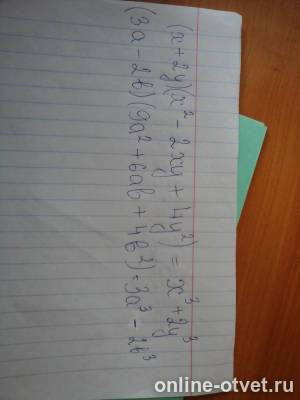 (x+2y)(x²-2xy+4y²)=x³+2y³
(3a-2b)(9a²+6ab+4b²)=3a³-2b³
online-otvet.ru